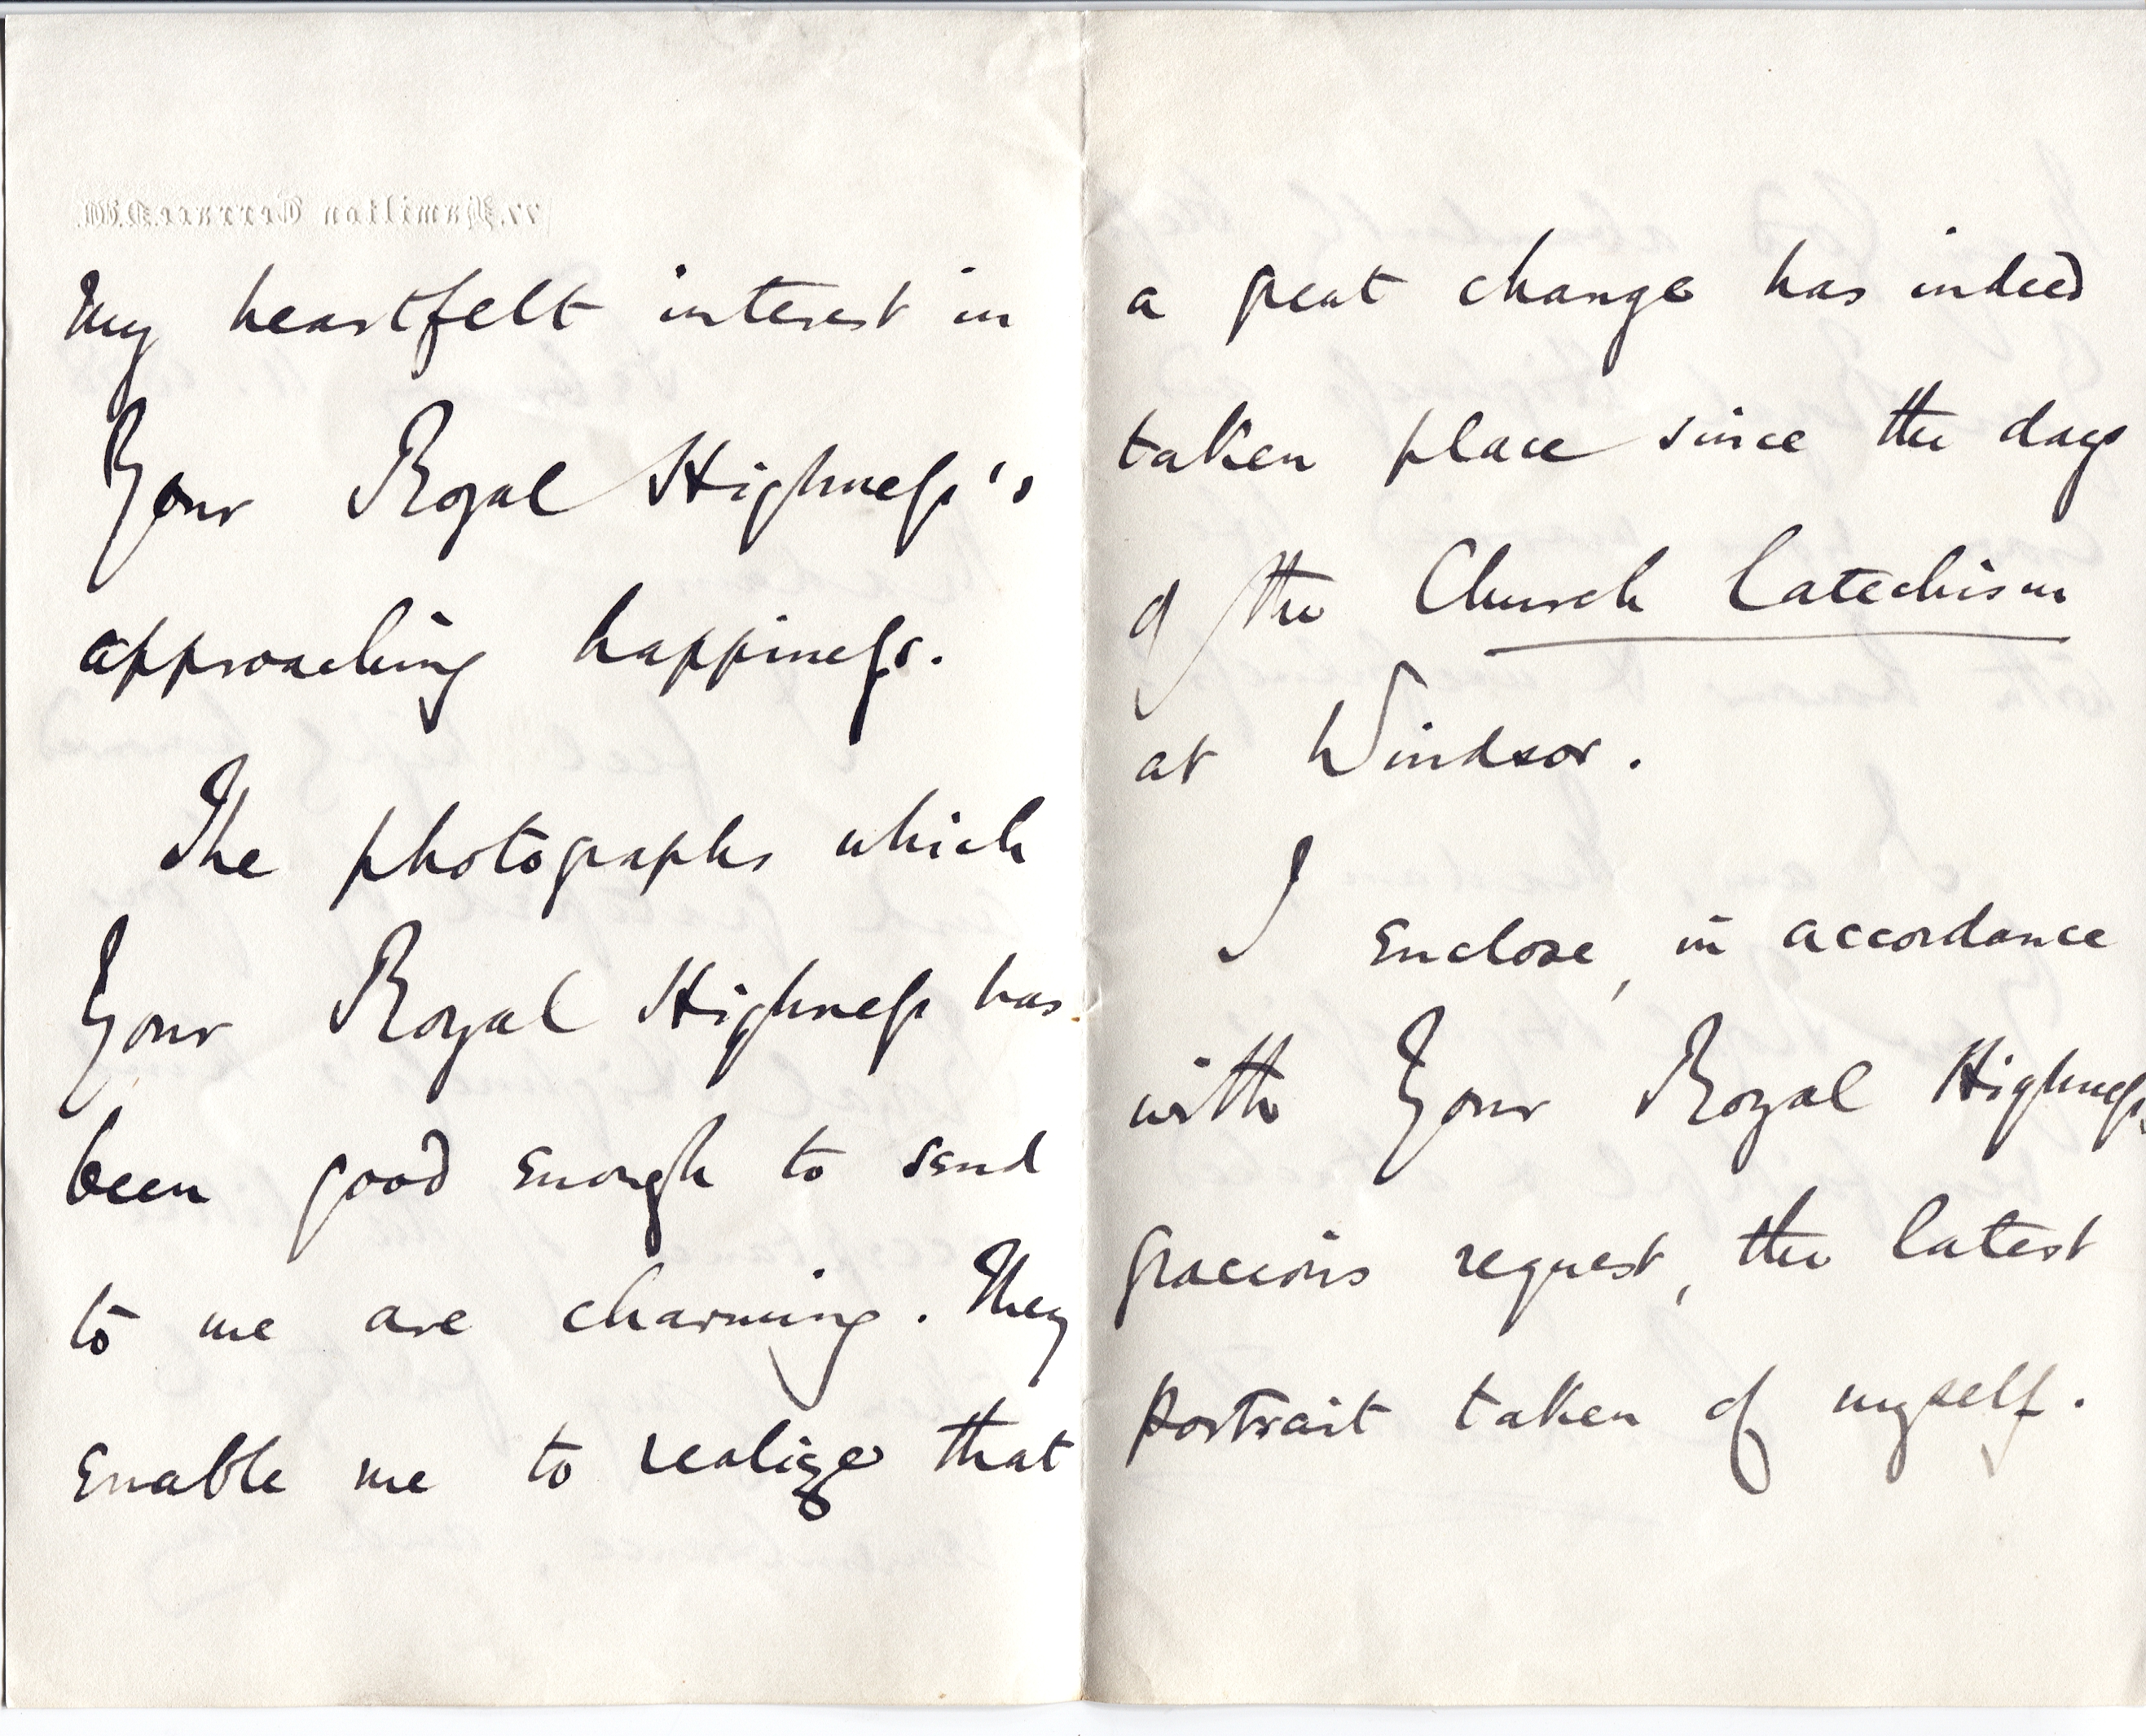 My heartfelt interest in
Your Royal Highness's
approaching happiness.
The photographs which
Your Royal Highness has
been good enough to send
to me are charming. They
enable me to realize that
a great change has indeed
taken place since the days
of the Church Catechism
at Windsor.
I enclose, in accordance
with Your Royal Highness's
gracious request, the latest
portrait taken of myself.